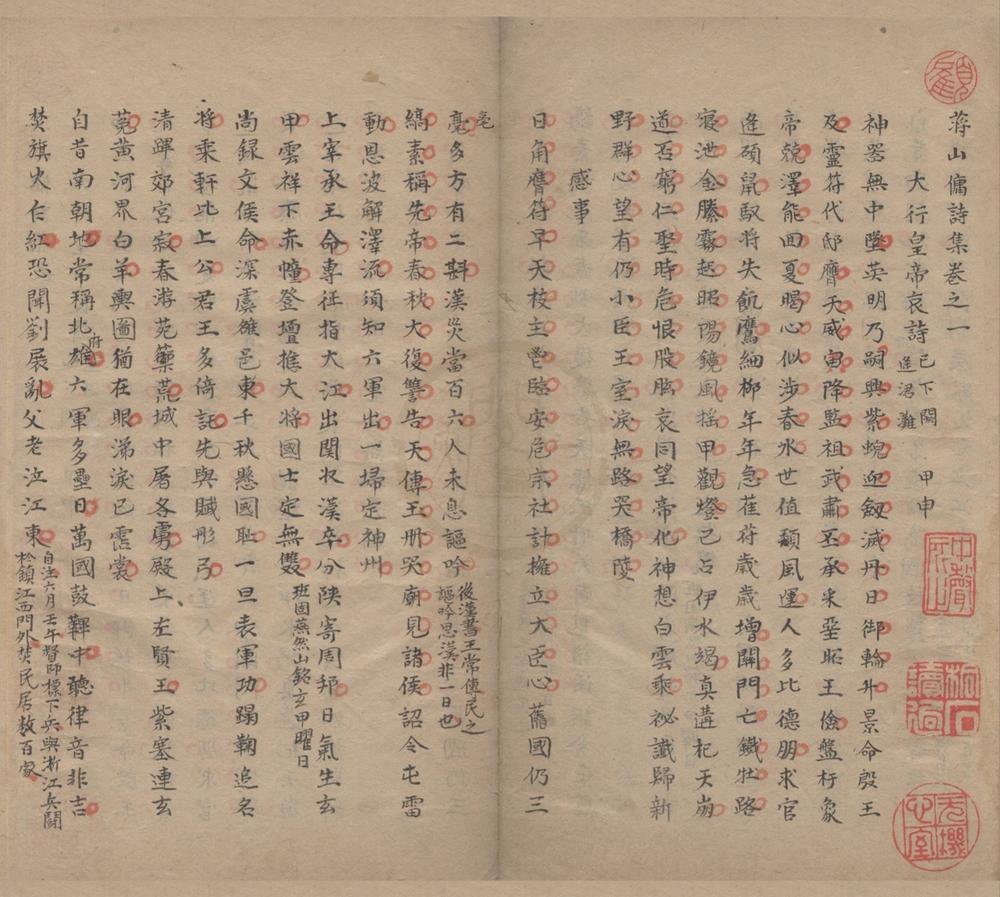 蒋山傭詩集卷之一
大行皇帝哀詩 已下閼逢涒灘 甲申
神器無中墜英明乃嗣興紫蜺迎劔滅丹日御輪升景命殷王
及靈符代邸膺天威寅降監祖武肅丕承采堊昭王儉盤杅象
帝兢澤能回夏暍心似涉春冰世值頹風運人多比德朋求官
逢碩鼠馭將失飢鷹細栁年年急萑苻歲歲增關門亡鐵牡路
寢泄金縢霧起昭陽鏡風摇甲觀燈已占伊水竭真遘杞天崩
道否窮仁聖時危恨股肱哀同望帝化神想白雲乘祕讖歸新
野群心望有仍小臣王室淚無路哭橋陵
感事
日角膺符早天枝主鬯臨安危宗社計擁立大臣心舊國仍三
亳多方有二斟漢災當百六人未息謳吟 後漢書王常傳民之謳吟思漢非一日也
亳
縞素稱先帝春秋大復讐告天傳玉冊哭廟見諸侯詔令屯雷
動恩波解澤流須知六軍出一埽定神州
上宰承王命專征指大江出關收漢卒分陝寄周邦日氣生玄
甲雲祥下赤幢登壇推大將國士定無雙 班固燕然山銘玄甲曜日
尚録文侯命深虞雒邑東千秋懸國恥一旦表軍功蹋鞠追名
將乘軒比上公君王多倚託先與賦彤弓
清蹕郊宮寂春游苑籞荒城中屠各虜殿上左賢王紫塞連玄
菟黄河界白羊輿圖猶在眼涕淚已霑裳
自昔南朝地常稱北雄六軍多壘日萬國鼓鼙中聽律音非吉
府
焚旗火乍紅恐聞劉展亂父老泣江東 自注六月壬午督師標下兵與浙江兵鬪於鎮江西門外焚民居數百家